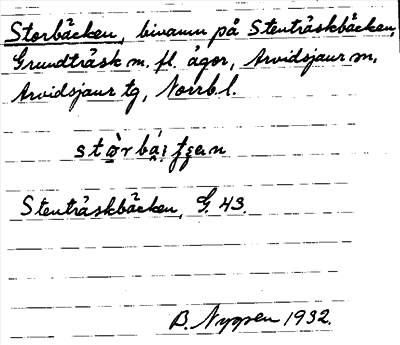 Storbäcken, binamn på Stenträskbäcken,
Grundträsk m. fl. ägor, Arvidsjaur sn,
Arvidsjaur tg, Norrb. l.
Stenträskbäcken, G. 43.
B. Nygren 1932.